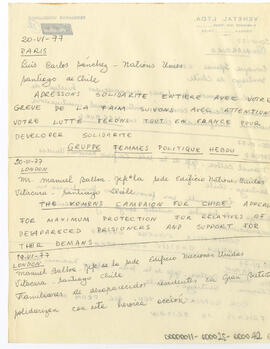 20-VI-77
PARIS
Luis Carlos Sanchez - Nations Unies
Santiago de Chile
ADRESSONS SOLIDARITE ENTIERE AVEC VOTRE
GREVE DE LA FAIM SUIVONS AVEC ATTENTION
VOTRE LUTTE FERONS TOUT EN FRANCE POUR
DEVELOPER SOLIDARITE
GRUPPE FEMMES POLITIQUE HEBDO
20-VI-77
LONDON
Mr. Manuel Balboa - Jefe la sede Edificio Nations Unidas
Vitacura - Santiago Chile
THE WOMENS CAMPAIGN FOR CHILE APPEAL
FOR MAXIMUM PROTECTION FOR RELATIVES OF
DESAPEARED PRISIONERS AND SUPPORT FOR
THEIR DEMANS
19-VI-77
LONDON
Manuel Balboa - Jefe de la sede Edificio Naciones Unidas
Vitacura - Santiago Chile
Familiares de desaparecidos residentes en Gran Bretaña
solidarizan con esta heroica accion
00000011-000025-000042